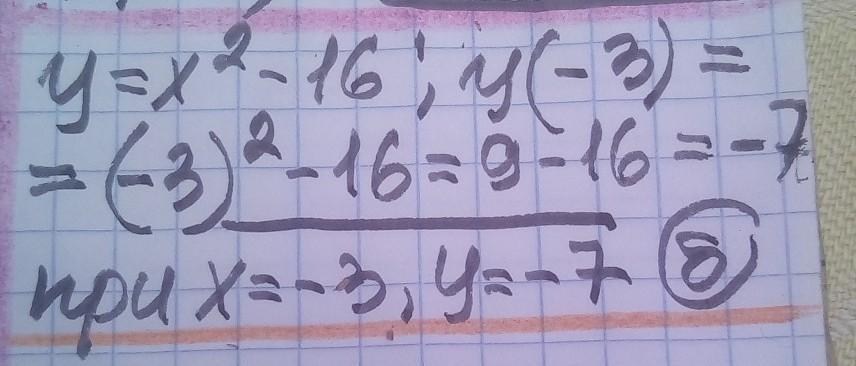 y=x²-16; y(-3)=
=(-3)²-16=9-16=-7
при x=-3, y=-7 б